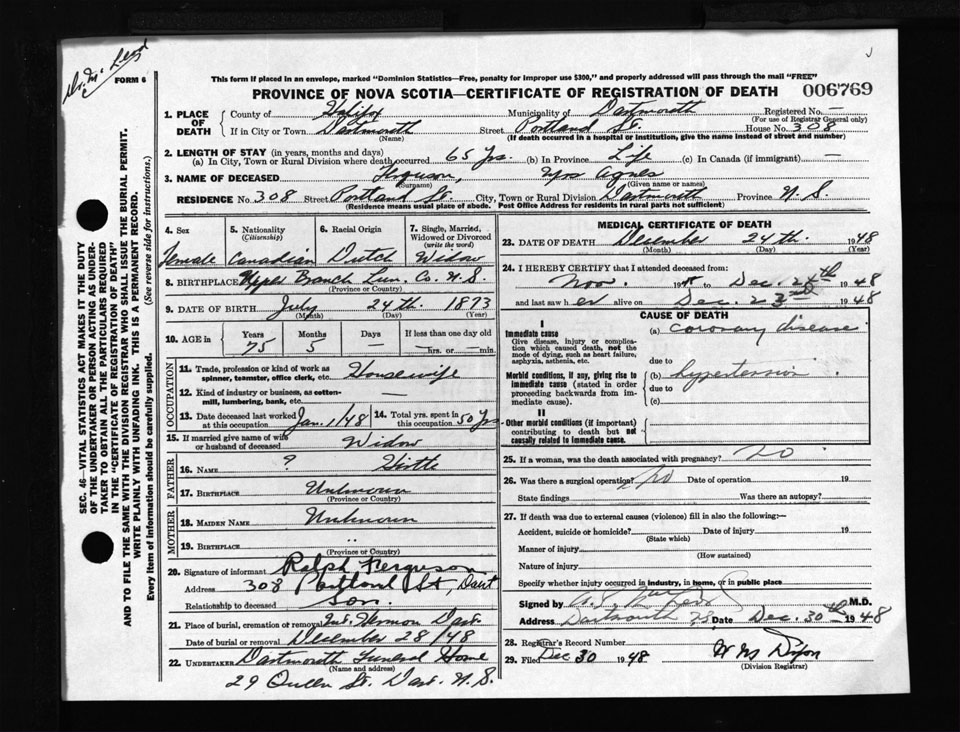 Dr. M
FORM 6
This form if placed in an envelope, marked "Dominion Statistics—Free, penalty for improper use $300," and properly addressed will pass through the mail "FREE"
PROVINCE OF NOVA SCOTIA—CERTIFICATE OF REGISTRATION OF DEATH 006769
1. PLACE OF DEATH County of Halifax Municipality of Dartmouth Registered No. —
(For use of Registrar General only)
If in City or Town Dartmouth Street Portland St. House No. 308
(Name) (If death occurred in a hospital or institution, give the name instead of street and number)
2. LENGTH OF STAY (in years, months and days)
(a) In City, Town or Rural Division where death occurred 65 Yrs. (b) In Province Life (c) In Canada (if immigrant) —
3. NAME OF DECEASED Ferguson, Mrs Agnes
(Surname) (Given name or names)
RESIDENCE No. 308 Street Portland St. City, Town or Rural Division Dartmouth Province N.S.
(Residence means usual place of abode. Post Office Address for residents in rural parts not sufficient)
4. Sex 5. Nationality (Citizenship) 6. Racial Origin 7. Single, Married, Widowed or Divorced (write the word)
Female Canadian Dutch Widow
8. BIRTHPLACE Upper Branch Lun. Co. N.S.
(Province or Country)
9. DATE OF BIRTH July 24th. 1873
(Month) (Day) (Year)
10. AGE in Years Months Days If less than one day old
75 5 — — hrs. or — min.
OCCUPATION
11. Trade, profession or kind of work as spinner, teamster, office clerk, etc. Housewife
12. Kind of industry or business, as cotton-mill, lumbering, bank, etc. —
13. Date deceased last worked at this occupation Jan. 1/48 14. Total yrs. spent in this occupation 50 Yrs
15. If married give name of wife or husband of deceased Widow
FATHER
16. NAME ? Hirtle
17. BIRTHPLACE Unknown
(Province or Country)
MOTHER
18. MAIDEN NAME Unknown
19. BIRTHPLACE "
(Province or Country)
20. Signature of informant Ralph Ferguson
Address 308 Portland St, Dart
Relationship to deceased Son.
21. Place of burial, cremation or removal Mt. Hermon Dart.
Date of burial or removal December 28/48
22. UNDERTAKER Dartmouth Funeral Home
(Name and address)
29 Queen St. Dart. N.S.
MEDICAL CERTIFICATE OF DEATH
23. DATE OF DEATH December 24th. 1948
(Month) (Day) (Year)
24. I HEREBY CERTIFY that I attended deceased from:
Nov. 19 to Dec. 1948
and last saw her alive on Dec. 23rd 1948
CAUSE OF DEATH
I
Immediate cause (a) coronary disease
Give disease, injury or complication which caused death, not the mode of dying, such as heart failure, asphyxia, asthenia, etc.
due to
Morbid conditions, if any, giving rise to immediate cause (stated in order proceeding backwards from immediate cause). (b) hypertension
due to
(c)
II
Other morbid conditions (if important) contributing to death but not causally related to immediate cause.
25. If a woman, was the death associated with pregnancy? No
26. Was there a surgical operation? No Date of operation 19
State findings Was there an autopsy?
27. If death was due to external causes (violence) fill in also the following:—
Accident, suicide or homicide? Date of injury 19
(State which)
Manner of injury
(How sustained)
Nature of injury
Specify whether injury occurred in industry, in home, or in public place
Signed by M.D.
Address Dartmouth NS Date Dec. 30th 1948
28. Registrar's Record Number
29. Filed Dec 30 1948 W M Dixon
(Division Registrar)
SEC. 46—VITAL STATISTICS ACT MAKES IT THE DUTY
OF THE UNDERTAKER OR PERSON ACTING AS UNDER-
TAKER TO OBTAIN ALL THE PARTICULARS REQUIRED
IN THE "CERTIFICATE OF REGISTRATION OF DEATH"
AND TO FILE THE SAME WITH THE DIVISION REGISTRAR WHO SHALL ISSUE THE BURIAL PERMIT.
WRITE PLAINLY WITH UNFADING INK. THIS IS A PERMANENT RECORD.
Every item of information should be carefully supplied. (See reverse side for instructions.)